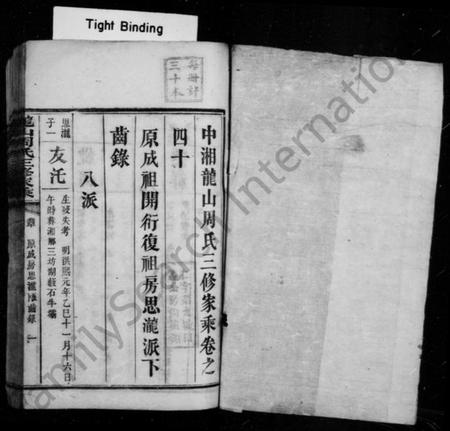 Tight Binding
每冊計
三十本
中湘龍山周氏三修家乘卷之
四十
原成祖開衍復祖房思瀧派下
齒錄
八派
思瀧
子一
友汑
生歿失考 明洪熙元年乙巳十一月十六日
午時葬湘鄉三坊湖
石牛
龍山周氏三修家乘
原成房思瀧
齒錄
FamilySearch International